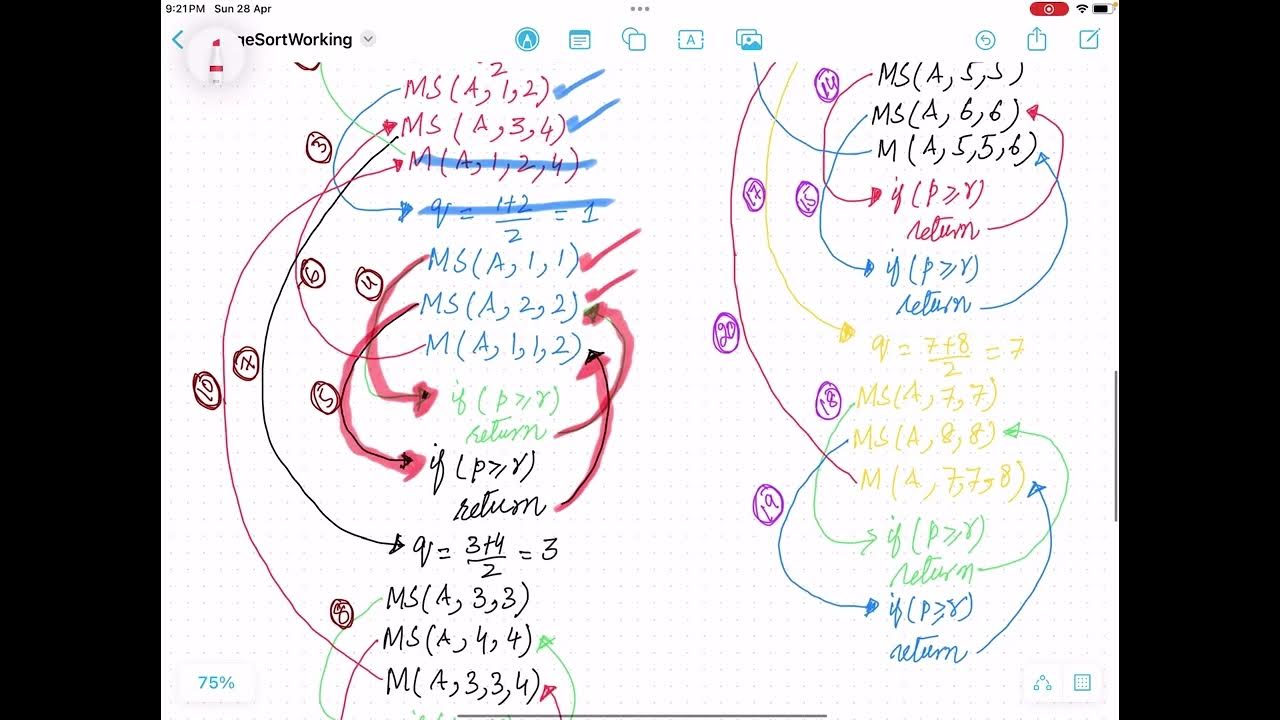 9:21PM Sun 28 Apr
geSortWorking
A
2
MS(A,1,2)
MS(A,3,4)
M(A,1,2,4)
q = 1+2/2 = 1
MS(A,1,1)
MS(A,2,2)
M(A,1,1,2)
if (p≥r)
return
if (p≥r)
return
q = 3+4/2 = 3
MS(A,3,3)
MS(A,4,4)
M(A,3,3,4)
3
6
4
7
10
5
8
75%
MS(A,5,5)
MS(A,6,6)
M(A,5,5,6)
if (p≥r)
return
if (p≥r)
return
q = 7+8/2 = 7
MS(A,7,7)
MS(A,8,8)
M(A,7,7,8)
if (p≥r)
return
if (p≥r)
return
14
17
15
20
18
19